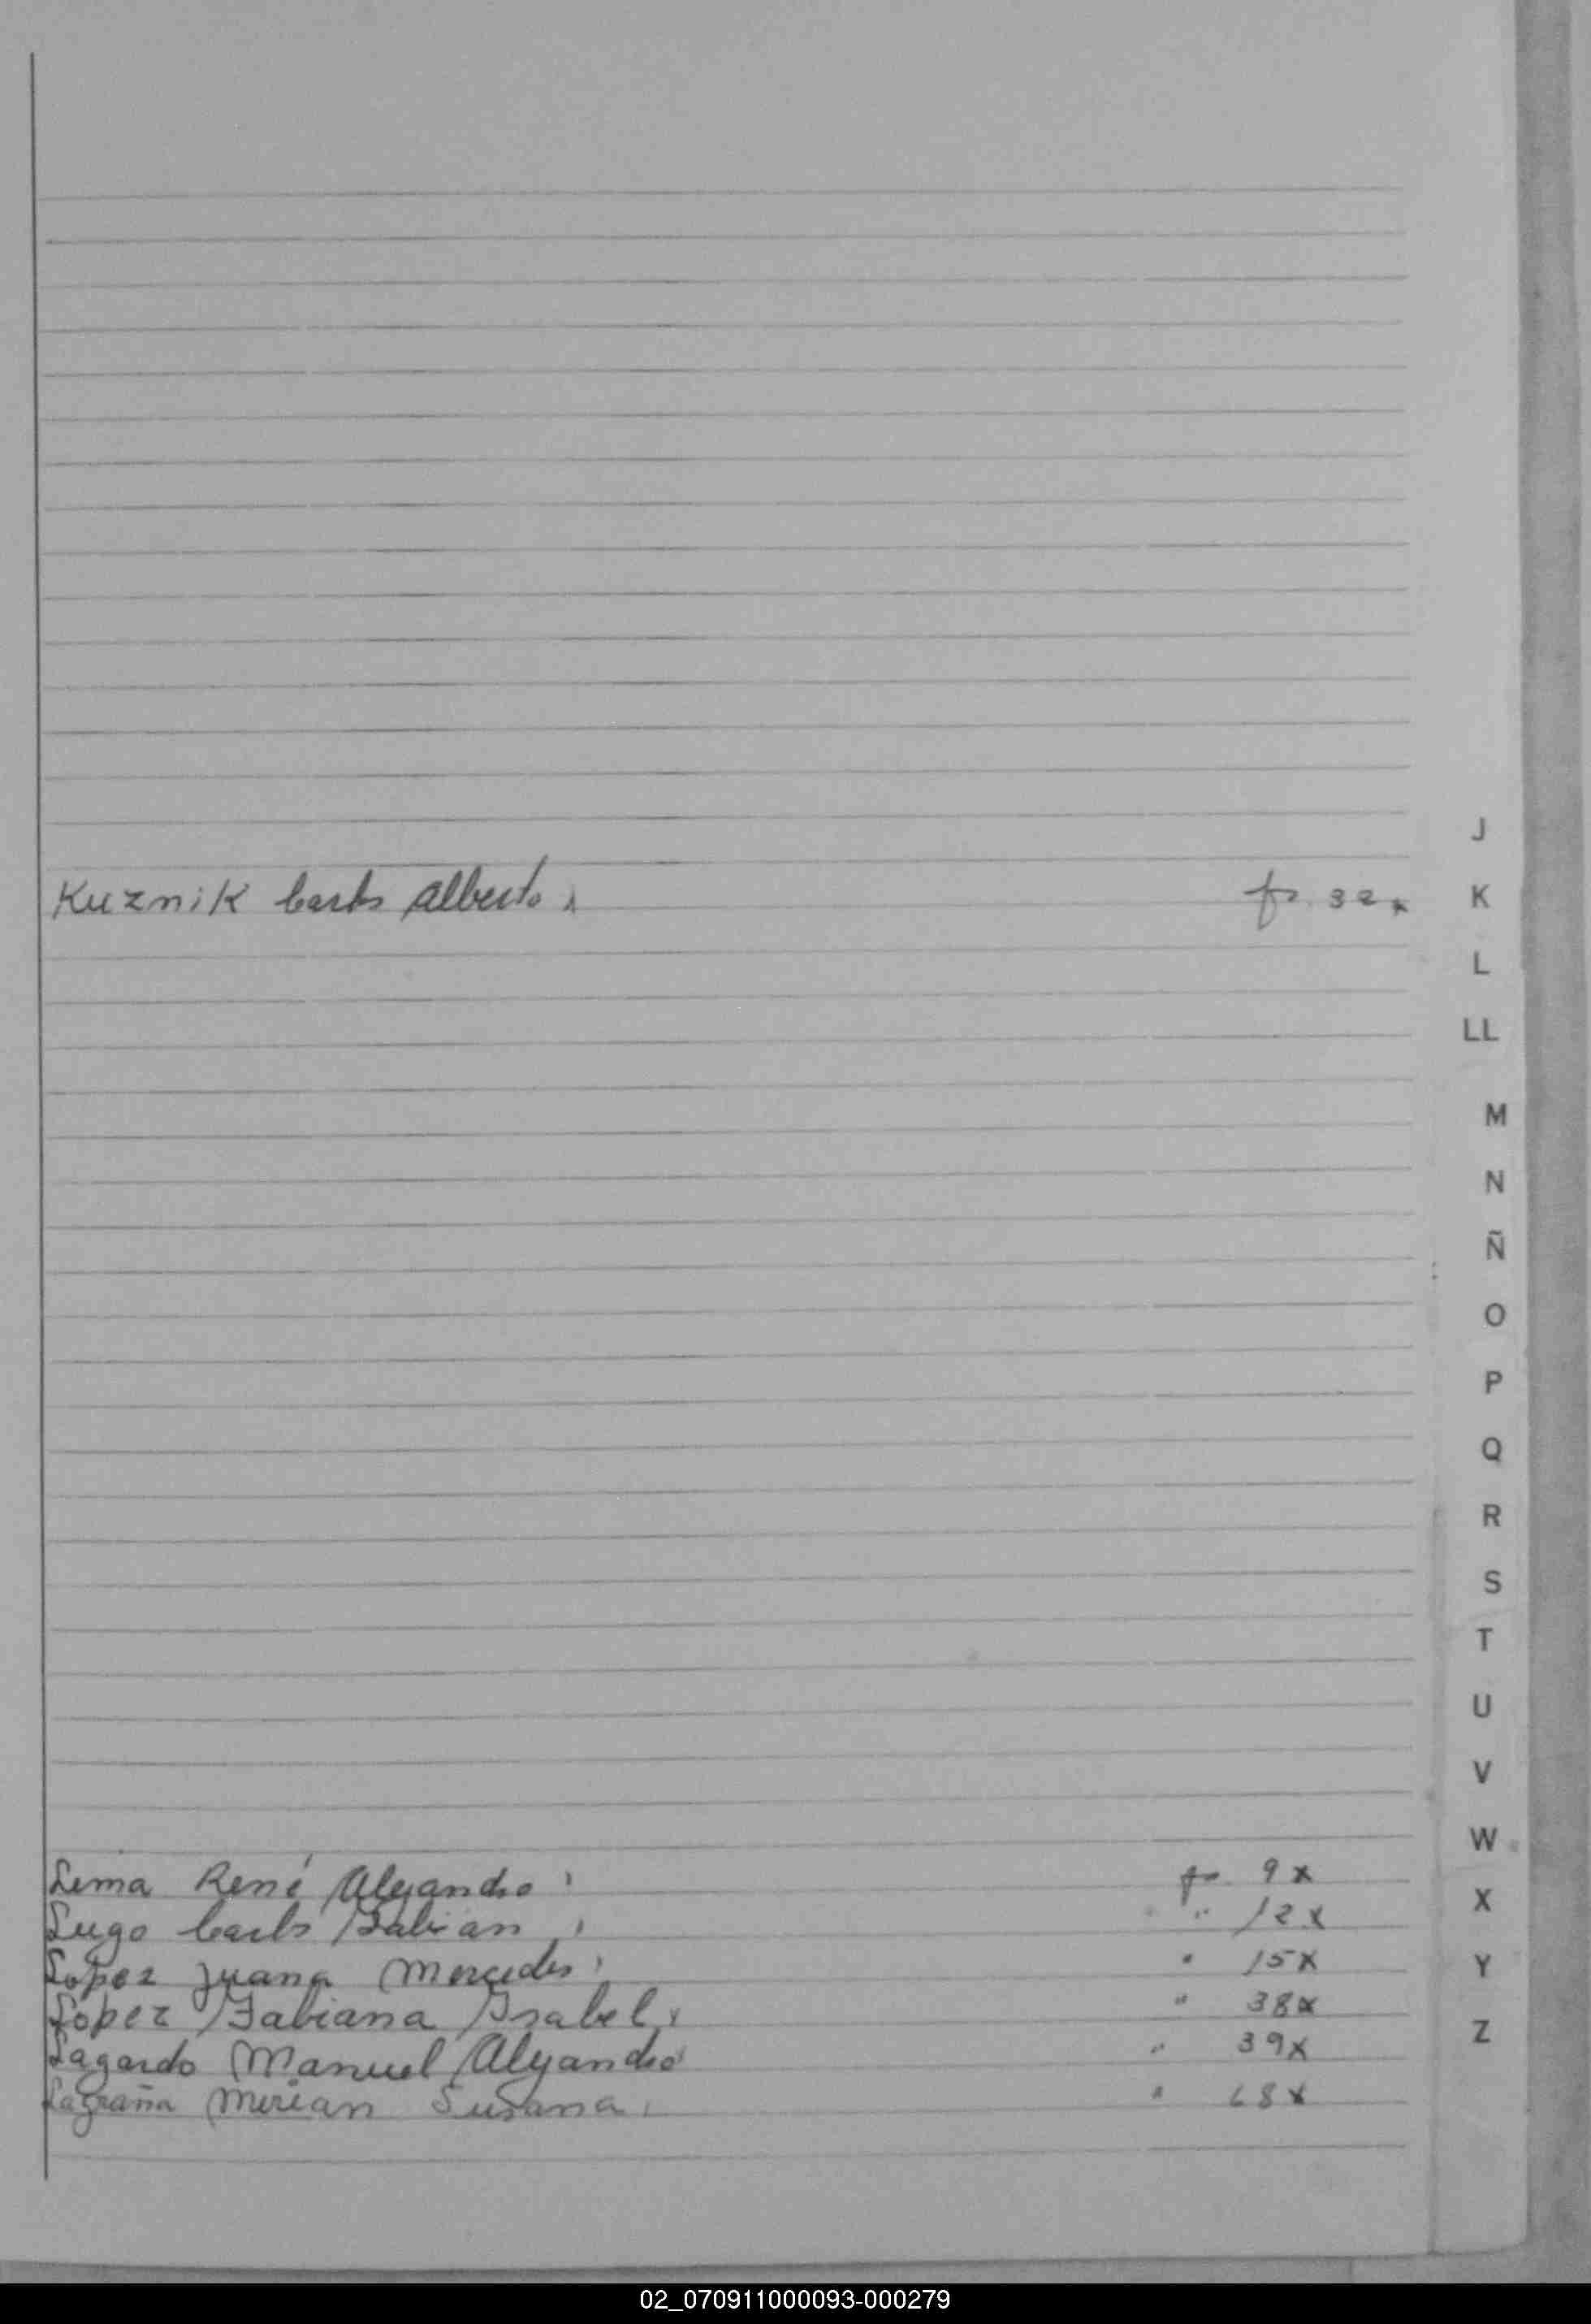 J
Kuznik Carlos Alberto fo. 32 x
K
L
LL
M
N
Ñ
O
P
Q
R
S
T
U
V
W
Lema René Alejandro fo 9 x
X
Lugo Carlos Fabian " 12 x
Lopez Juana Mercedes " 15 x
Y
Lopez Fabiana Isabel " 38 x
Z
Lagardo Manuel Alejandro " 39 x
Lagraña Mirian Susana " 68 x
02_070911000093-000279